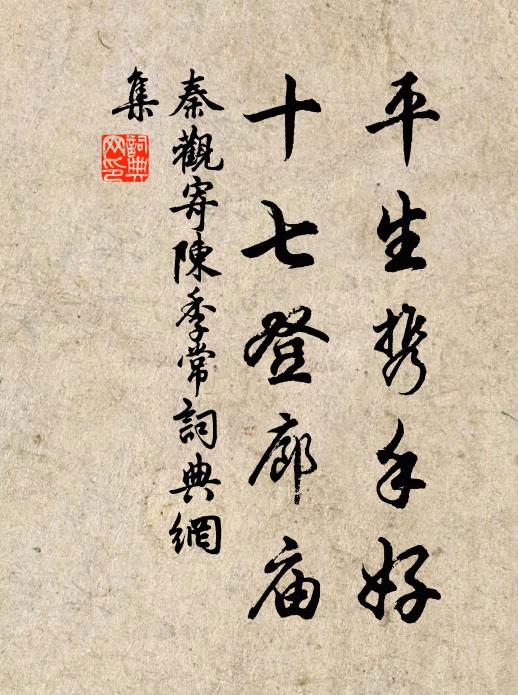 平生携手好
十七登廊庙
秦觀寄陳季常詞典網
集
詞典
网印